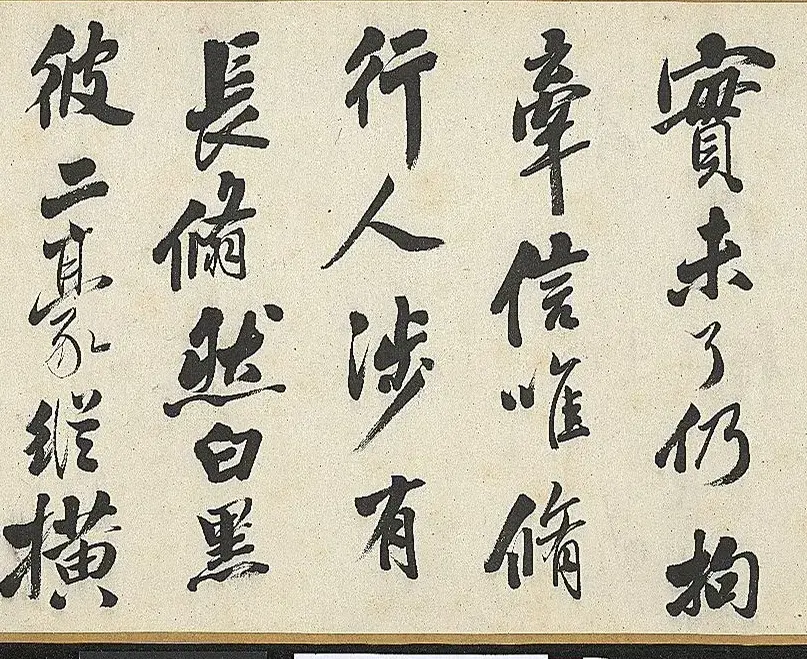 實未了仍拘
牽信唯脩
行人涉有
長翛然白黑
彼二豪縱橫